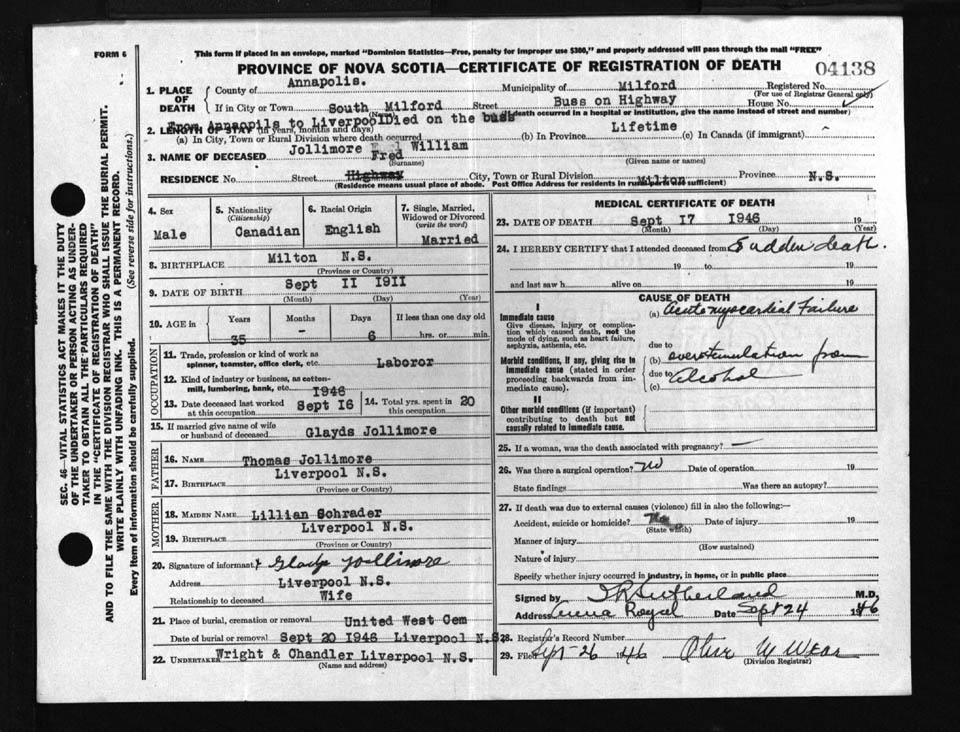 FORM 6
This form if placed in an envelope, marked "Dominion Statistics—Free, penalty for improper use $300," and properly addressed will pass through the mail "FREE"
PROVINCE OF NOVA SCOTIA—CERTIFICATE OF REGISTRATION OF DEATH
04138
1. PLACE OF DEATH
County of Annapolis. Municipality of Milford Registered No.
(For use of Registrar General only)
If in City or Town South Milford Street Buss on Highway House No.
death occurred in a hospital or institution, give the name instead of street and number)
From Annaopils to Liverpool Died on the buss
2. LENGTH OF STAY (in years, months and days)
(a) In City, Town or Rural Division where death occurred (b) In Province Lifetime (c) In Canada (if immigrant)
3. NAME OF DECEASED Jollimore William
Fred
(Surname) (Given name or names)
RESIDENCE No. Street Highway City, Town or Rural Division Milton Province N.S.
(Residence means usual place of abode. Post Office Address for residents in rural parts not sufficient)
4. Sex
Male
5. Nationality
(Citizenship)
Canadian
6. Racial Origin
English
7. Single, Married, Widowed or Divorced
(write the word)
Married
8. BIRTHPLACE Milton N.S.
(Province or Country)
9. DATE OF BIRTH Sept II I9II
(Month) (Day) (Year)
10. AGE in
Years Months Days If less than one day old
35 - 6 hrs. or min.
OCCUPATION
11. Trade, profession or kind of work as spinner, teamster, office clerk, etc. Laboror
12. Kind of industry or business, as cotton-mill, lumbering, bank, etc.
13. Date deceased last worked at this occupation I946 Sept I6
14. Total yrs. spent in this occupation 20
15. If married give name of wife or husband of deceased Glayds Jollimore
FATHER
16. NAME Thomas Jollimore
17. BIRTHPLACE Liverpool N.S.
(Province or Country)
MOTHER
18. MAIDEN NAME Lillian Schrader
19. BIRTHPLACE Liverpool N.S.
(Province or Country)
20. Signature of informant Gladys Jollimore
Address Liverpool N.S.
Relationship to deceased Wife
21. Place of burial, cremation or removal United West Cem
Date of burial or removal Sept 20 I946 Liverpool N.S.
22. UNDERTAKER Wright & Chandler Liverpool N.S.
(Name and address)
MEDICAL CERTIFICATE OF DEATH
23. DATE OF DEATH Sept I7 I946 19
(Month) (Day) (Year)
24. I HEREBY CERTIFY that I attended deceased from Sudden death.
19 to 19
and last saw h alive on 19
CAUSE OF DEATH
I
Immediate cause
Give disease, injury or complication which caused death, not the mode of dying, such as heart failure, asphyxia, asthenia, etc.
(a) Acute myocardial Failure
due to
Morbid conditions, if any, giving rise to immediate cause (stated in order proceeding backwards from immediate cause).
(b) overstimulation from
due to Alcohol
(c)
II
Other morbid conditions (if important) contributing to death but not causally related to immediate cause.
25. If a woman, was the death associated with pregnancy? —
26. Was there a surgical operation? no Date of operation 19
State findings Was there an autopsy?
27. If death was due to external causes (violence) fill in also the following:—
Accident, suicide or homicide? no Date of injury 19
(State which)
Manner of injury
(How sustained)
Nature of injury
Specify whether injury occurred in industry, in home, or in public place
Signed by Sutherland M.D.
Address Royal Date Sept 24 1946
28. Registrar's Record Number
29. Filed Sept-26 1946 Olive Wear
(Division Registrar)
SEC. 46—VITAL STATISTICS ACT MAKES IT THE DUTY
OF THE UNDERTAKER OR PERSON ACTING AS UNDER-
TAKER TO OBTAIN ALL THE PARTICULARS REQUIRED
IN THE "CERTIFICATE OF REGISTRATION OF DEATH"
AND TO FILE THE SAME WITH THE DIVISION REGISTRAR WHO SHALL ISSUE THE BURIAL PERMIT.
WRITE PLAINLY WITH UNFADING INK. THIS IS A PERMANENT RECORD.
Every item of information should be carefully supplied. (See reverse side for instructions.)